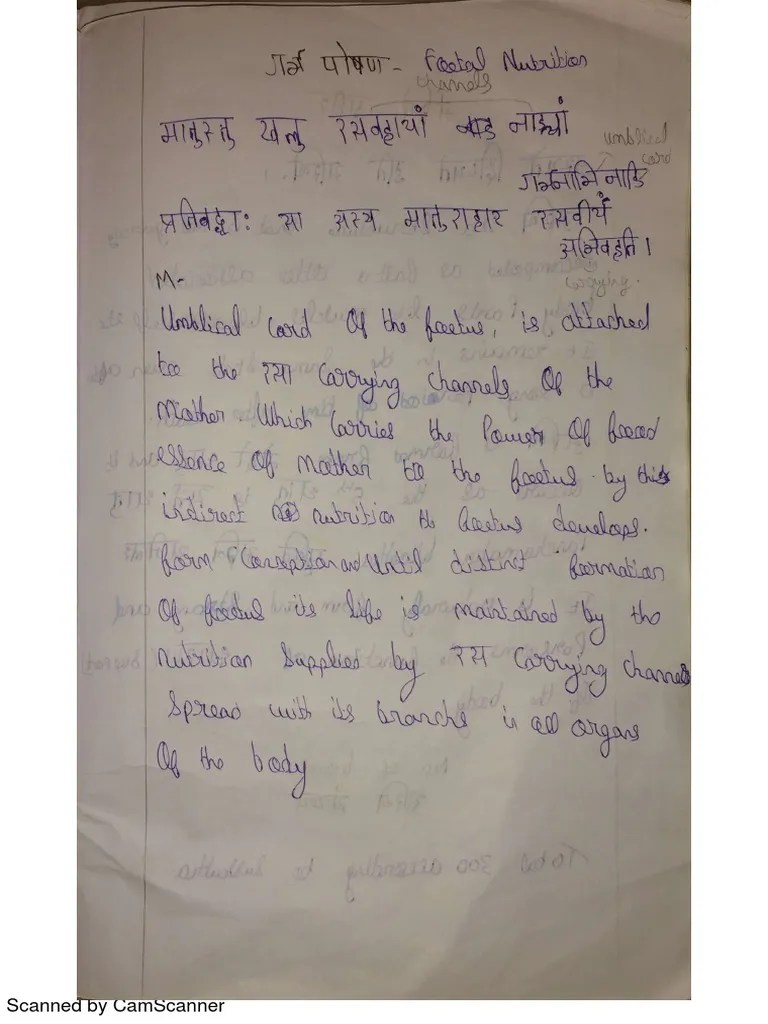 गर्भ पोषण - Foetal Nutrition
channels
मातुस्तु खलु रसवहायां नाड्यां
umbilical
cord
गर्भनाभिनाडि
प्रतिबद्धा: सा अस्य मातुराहार रसवीर्यं
अभिवहति।
carrying.
M-
Umblical cord Of the foetus, is attached
to the रसा Carrying Channels Of the
Mother. Which Carries the Power Of food
essence Of mother to the foetus. by this
indirect nutrition the foetus develops.
form Conception and Until distinct formation
Of foetus its life is maintained by the
Nutrition Supplied by रस Carrying channels
Spread with its branche in all organs
Of the body
Scanned by CamScanner